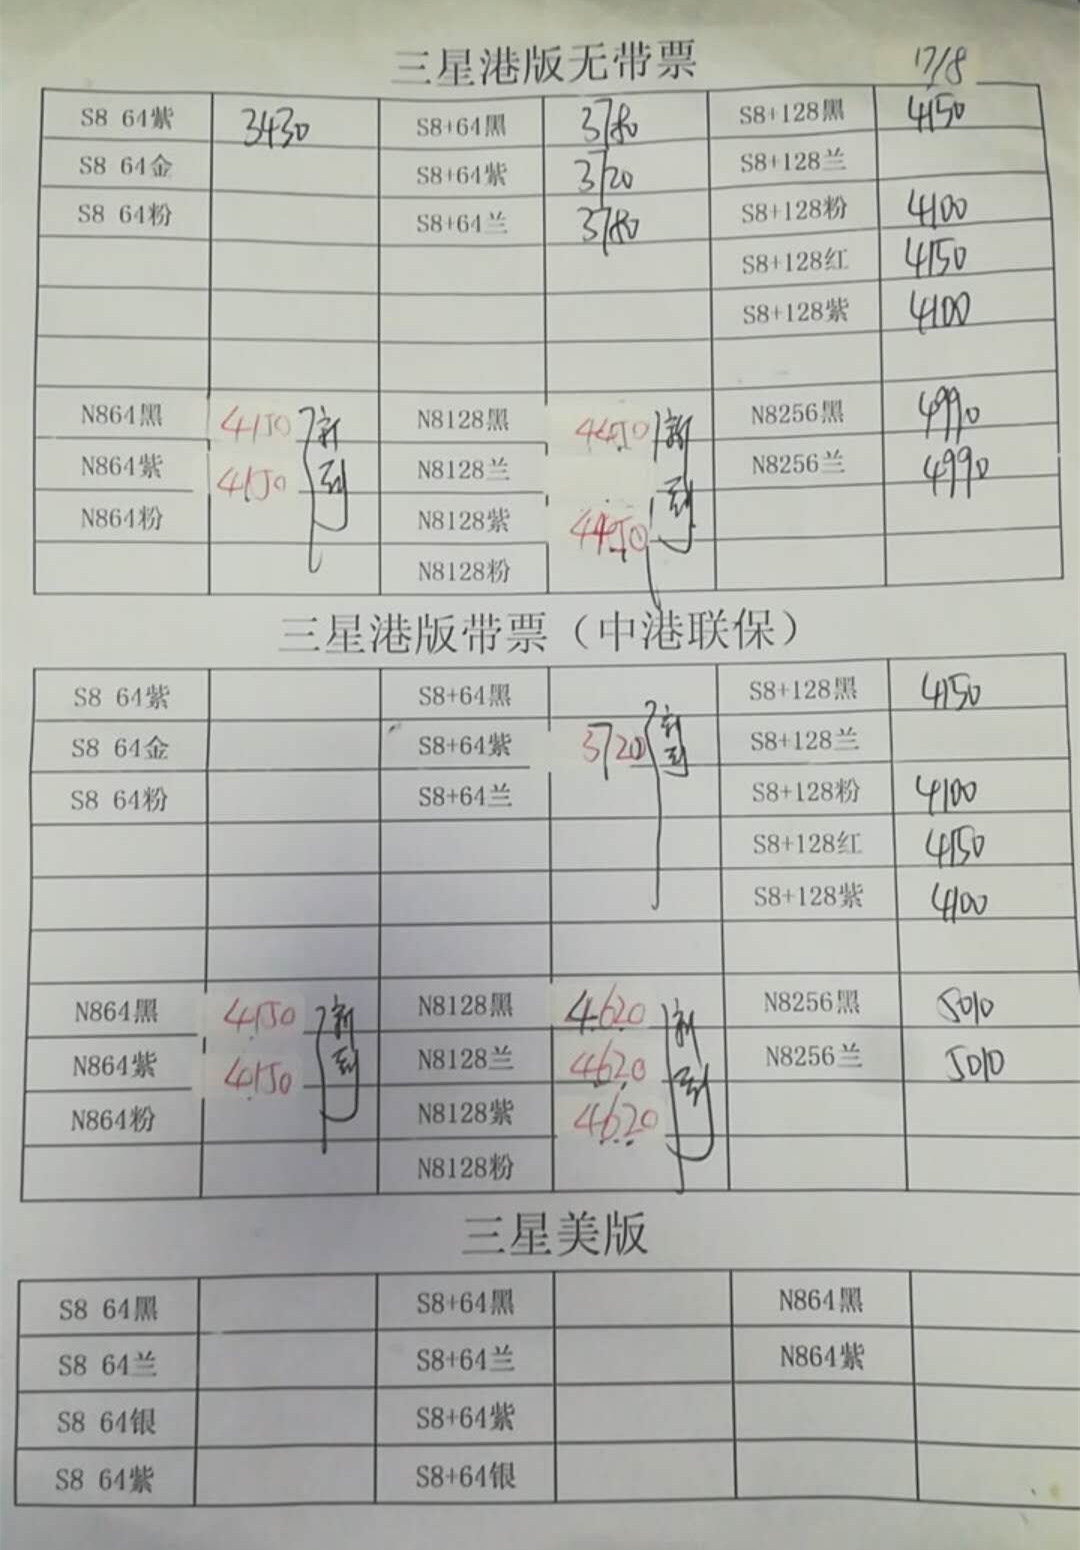 三星港版无带票 17/8
S8 64紫 3430 S8+64黑 3780 S8+128黑 4150
S8 64金 S8+64紫 3720 S8+128兰
S8 64粉 S8+64兰 3780 S8+128粉 4100
S8+128红 4150
S8+128紫 4100
N864黑 4150 新到 N8128黑 4450 新到 N8256黑 4990
N864紫 4150 N8128兰 N8256兰 4990
N864粉 N8128紫 4450
N8128粉
三星港版带票（中港联保）
S8 64紫 S8+64黑 S8+128黑 4150
S8 64金 S8+64紫 3720 新到 S8+128兰
S8 64粉 S8+64兰 S8+128粉 4100
S8+128红 4150
S8+128紫 4100
N864黑 4150 新到 N8128黑 4620 新到 N8256黑 5010
N864紫 4150 N8128兰 4620 N8256兰 5010
N864粉 N8128紫 4620
N8128粉
三星美版
S8 64黑 S8+64黑 N864黑
S8 64兰 S8+64兰 N864紫
S8 64银 S8+64紫
S8 64紫 S8+64银